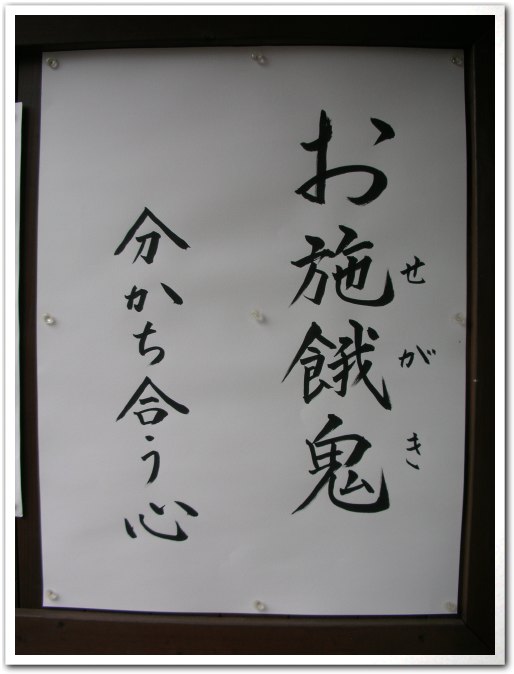 お施餓鬼
せがき
分かち合う心